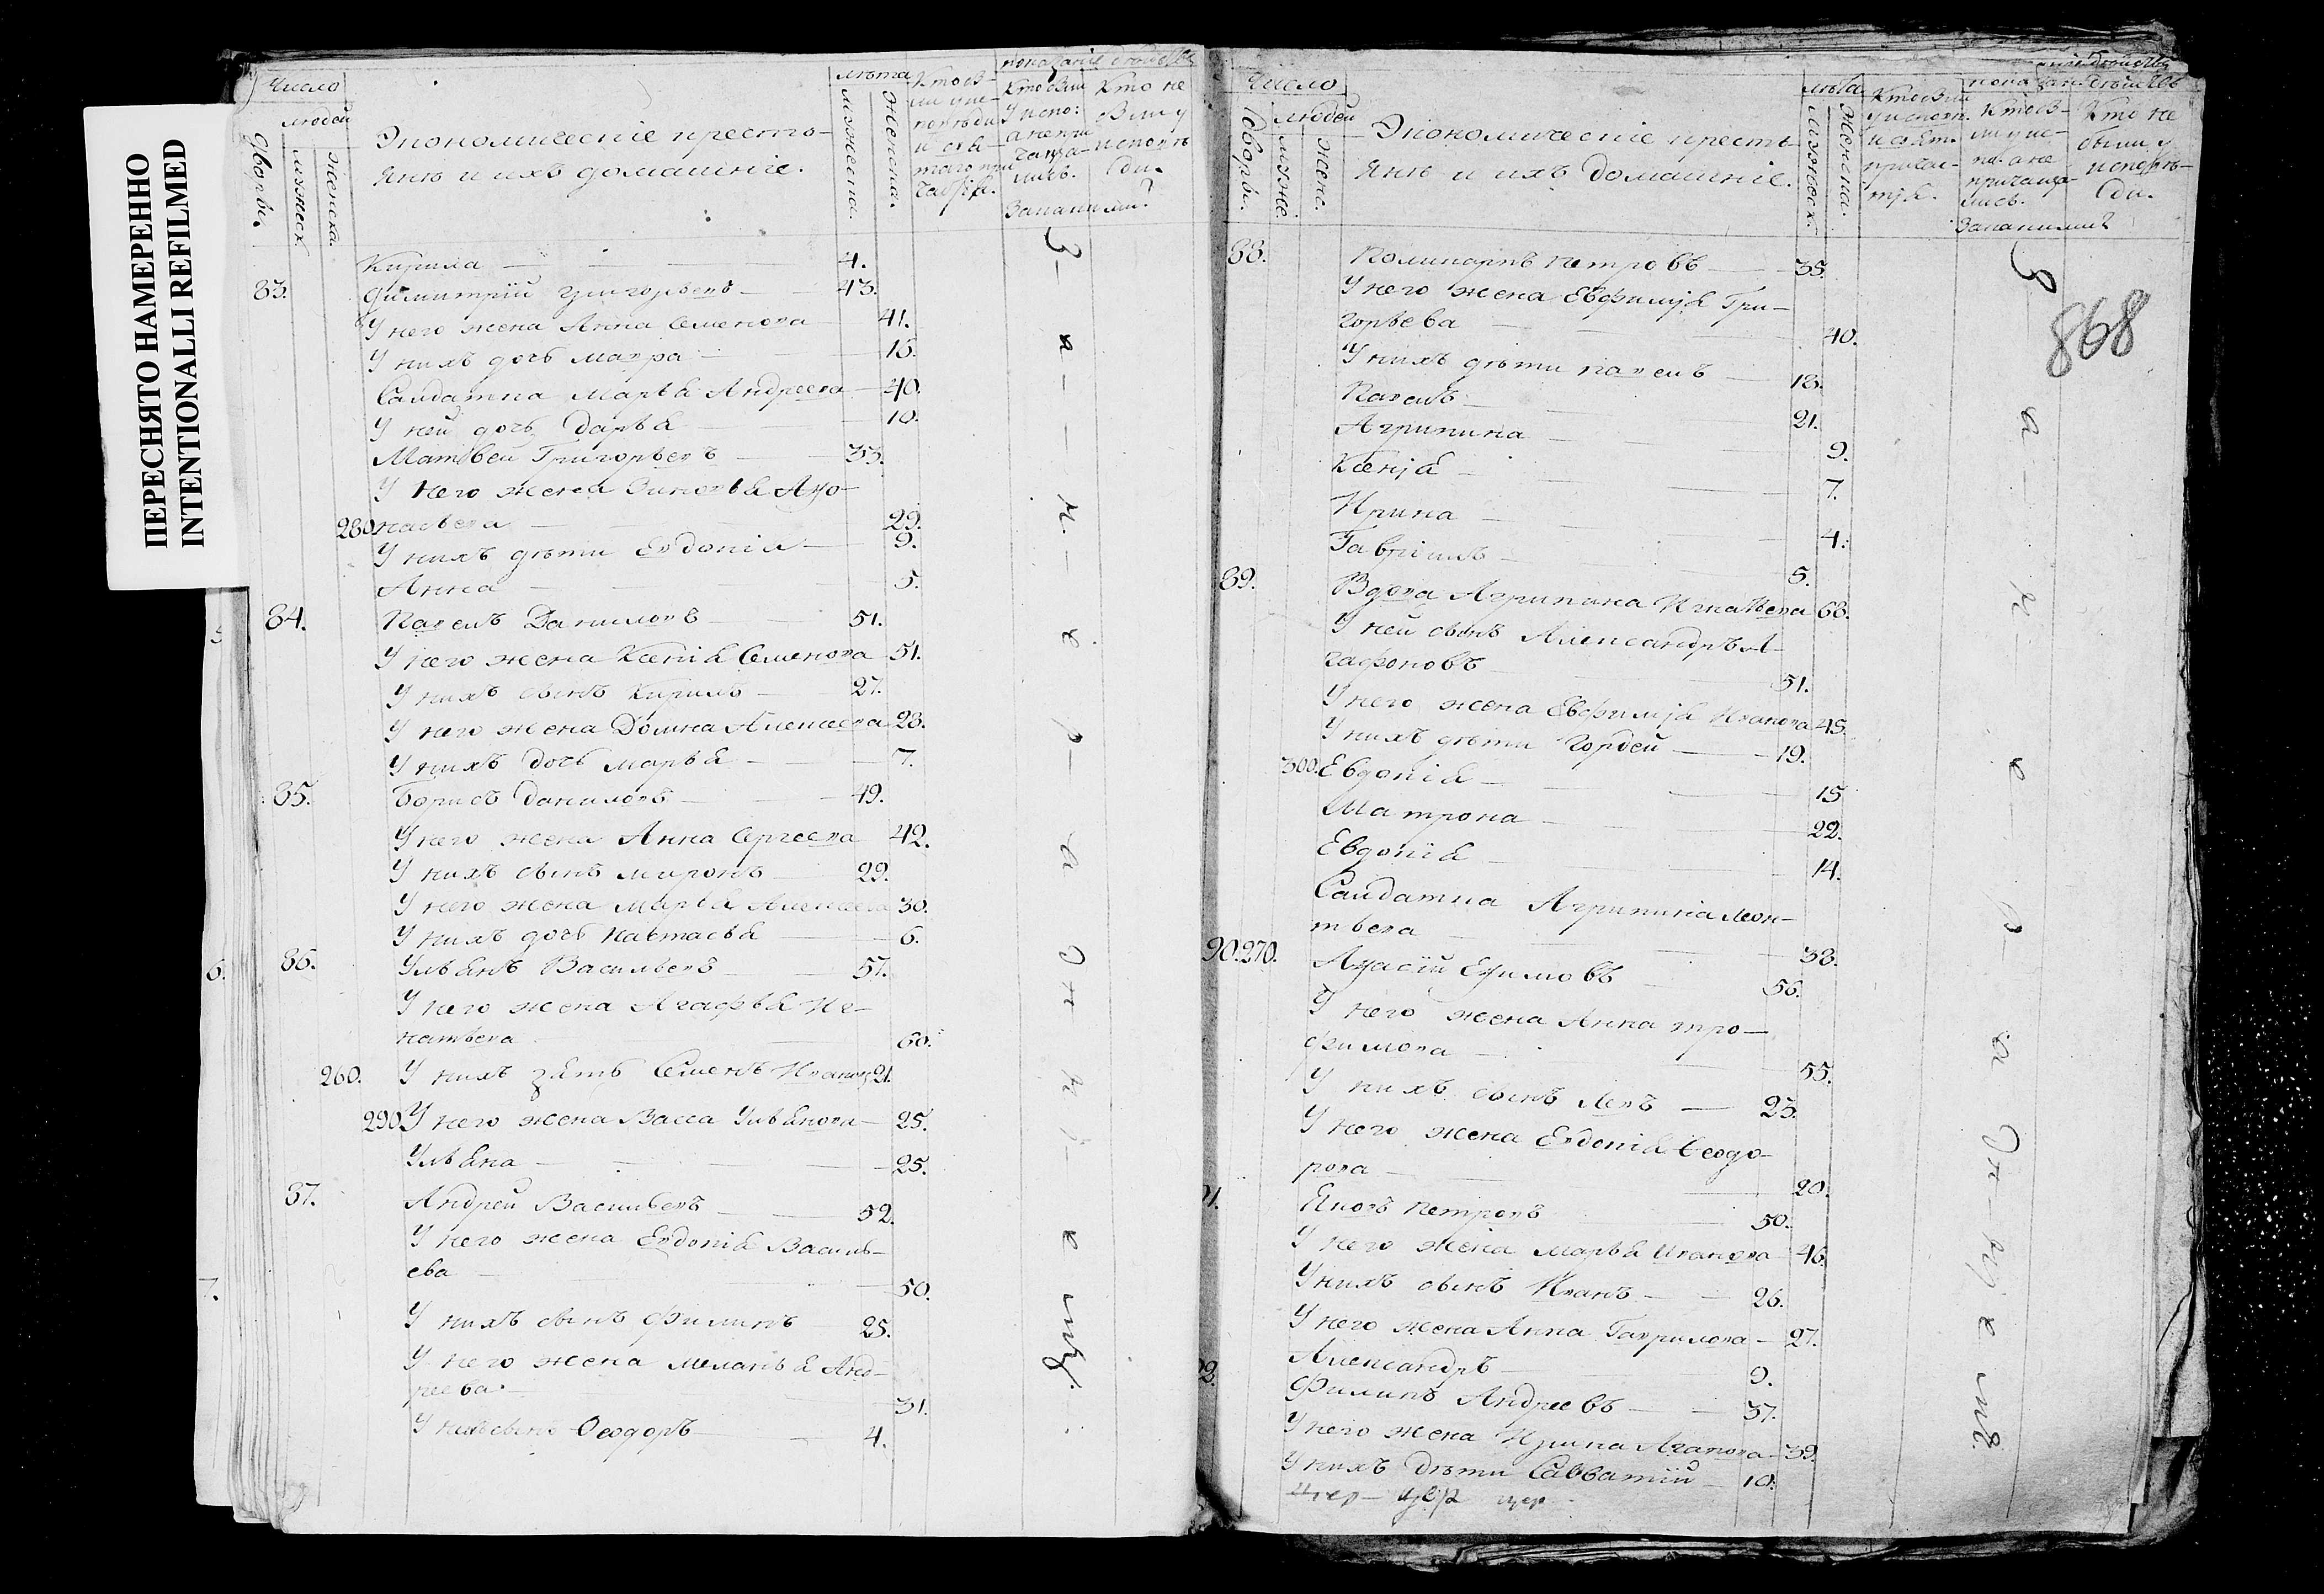 ПЕРЕСНЯТО НАМЕРЕННО
INTENTIONALLI REFILMED
Число
людей
Дворы.
мужеск.
женска.
Экономическіе кресть-
янѣ и ихъ домашніе.
лѣта
мужеска.
женска.
Кто не
были у
исповѣ-
ди.
Кирила — 4.
83. Димитрій Григорьевъ — 43.
У него жена Анна Семенова 41.
У нихъ дочь Мавра — 16.
Салдатка Марья Андреева — 40.
У ней дочь Дарья 10.
Матвей Григорьевъ — 33.
У него жена Зиновья Афо-
280. насьева — 29.
У нихъ дѣти Евдокія — 9.
Анна — 5.
84. Павелъ Даниловъ — 51.
У него жена Ксенія Семенова 51.
У нихъ сынъ Кирилъ — 27.
У него жена Домна Алексеева 28.
У нихъ дочь Марья — 7.
85. Борисъ Даниловъ — 49.
У него жена Анна Сергеева 42.
У нихъ сынъ Миронъ — 29.
У него жена Марья Алексеева 30.
У нихъ дочь Настасья — 6.
86. Ульянъ Васильевъ — 57.
У него жена Агафья Иг-
натьева 60.
260. У нихъ зять Семенъ Иванов 21.
290 У него жена Васса Ульянова — 25.
Ульяна — 25.
87. Андрей Васильевъ — 52.
У него жена Евдокія Василь-
ева — 50.
У нихъ сынъ Филипъ 25.
У него жена Меланья Анд-
реева — 31.
У нихъ сынъ Ѳеодоръ — 4.
Число
людей
Дворы.
муже.
женс.
Экономическіе кресть-
янѣ и ихъ домашніе.
лѣта
мужеск.
женска.
Кто не
были у
исповѣ-
ди.
868
88. Поликарпъ Петровъ — 35.
У него жена Евфимія Гри-
горьева — 40.
У нихъ дѣти Павелъ — 18.
Павелъ — 21.
Агрипина — 9.
Ксенія — 7.
Ирина — 4.
Гавріилъ — 5.
89. Вдова Агрипина Игнатьева 68.
У ней сынъ Александръ А-
гафоновъ 51.
У него жена Евфимія Иванова 45.
У нихъ дѣти Гордей — 19.
300. Евдокія — 15
Матрона — 22.
Евдокія — 14.
Салдатка Агрипина Леон-
тьева — 38.
90. 270. Афасій Ефимовъ 56.
У него жена Анна Тро-
фимова — 55.
У нихъ сынъ Левъ — 23.
У него жена Евдокія Ѳеодо-
рова — 20.
91. Яковъ Петровъ 50.
У него жена Марья Иванова 46.
У нихъ сынъ Иванъ — 26.
У него жена Анна Гаврилова — 27.
Александръ — 9.
92. Филипъ Андреевъ — 37.
У него жена Ирина Агапова — 39.
У нихъ дѣти Савватій — 10.